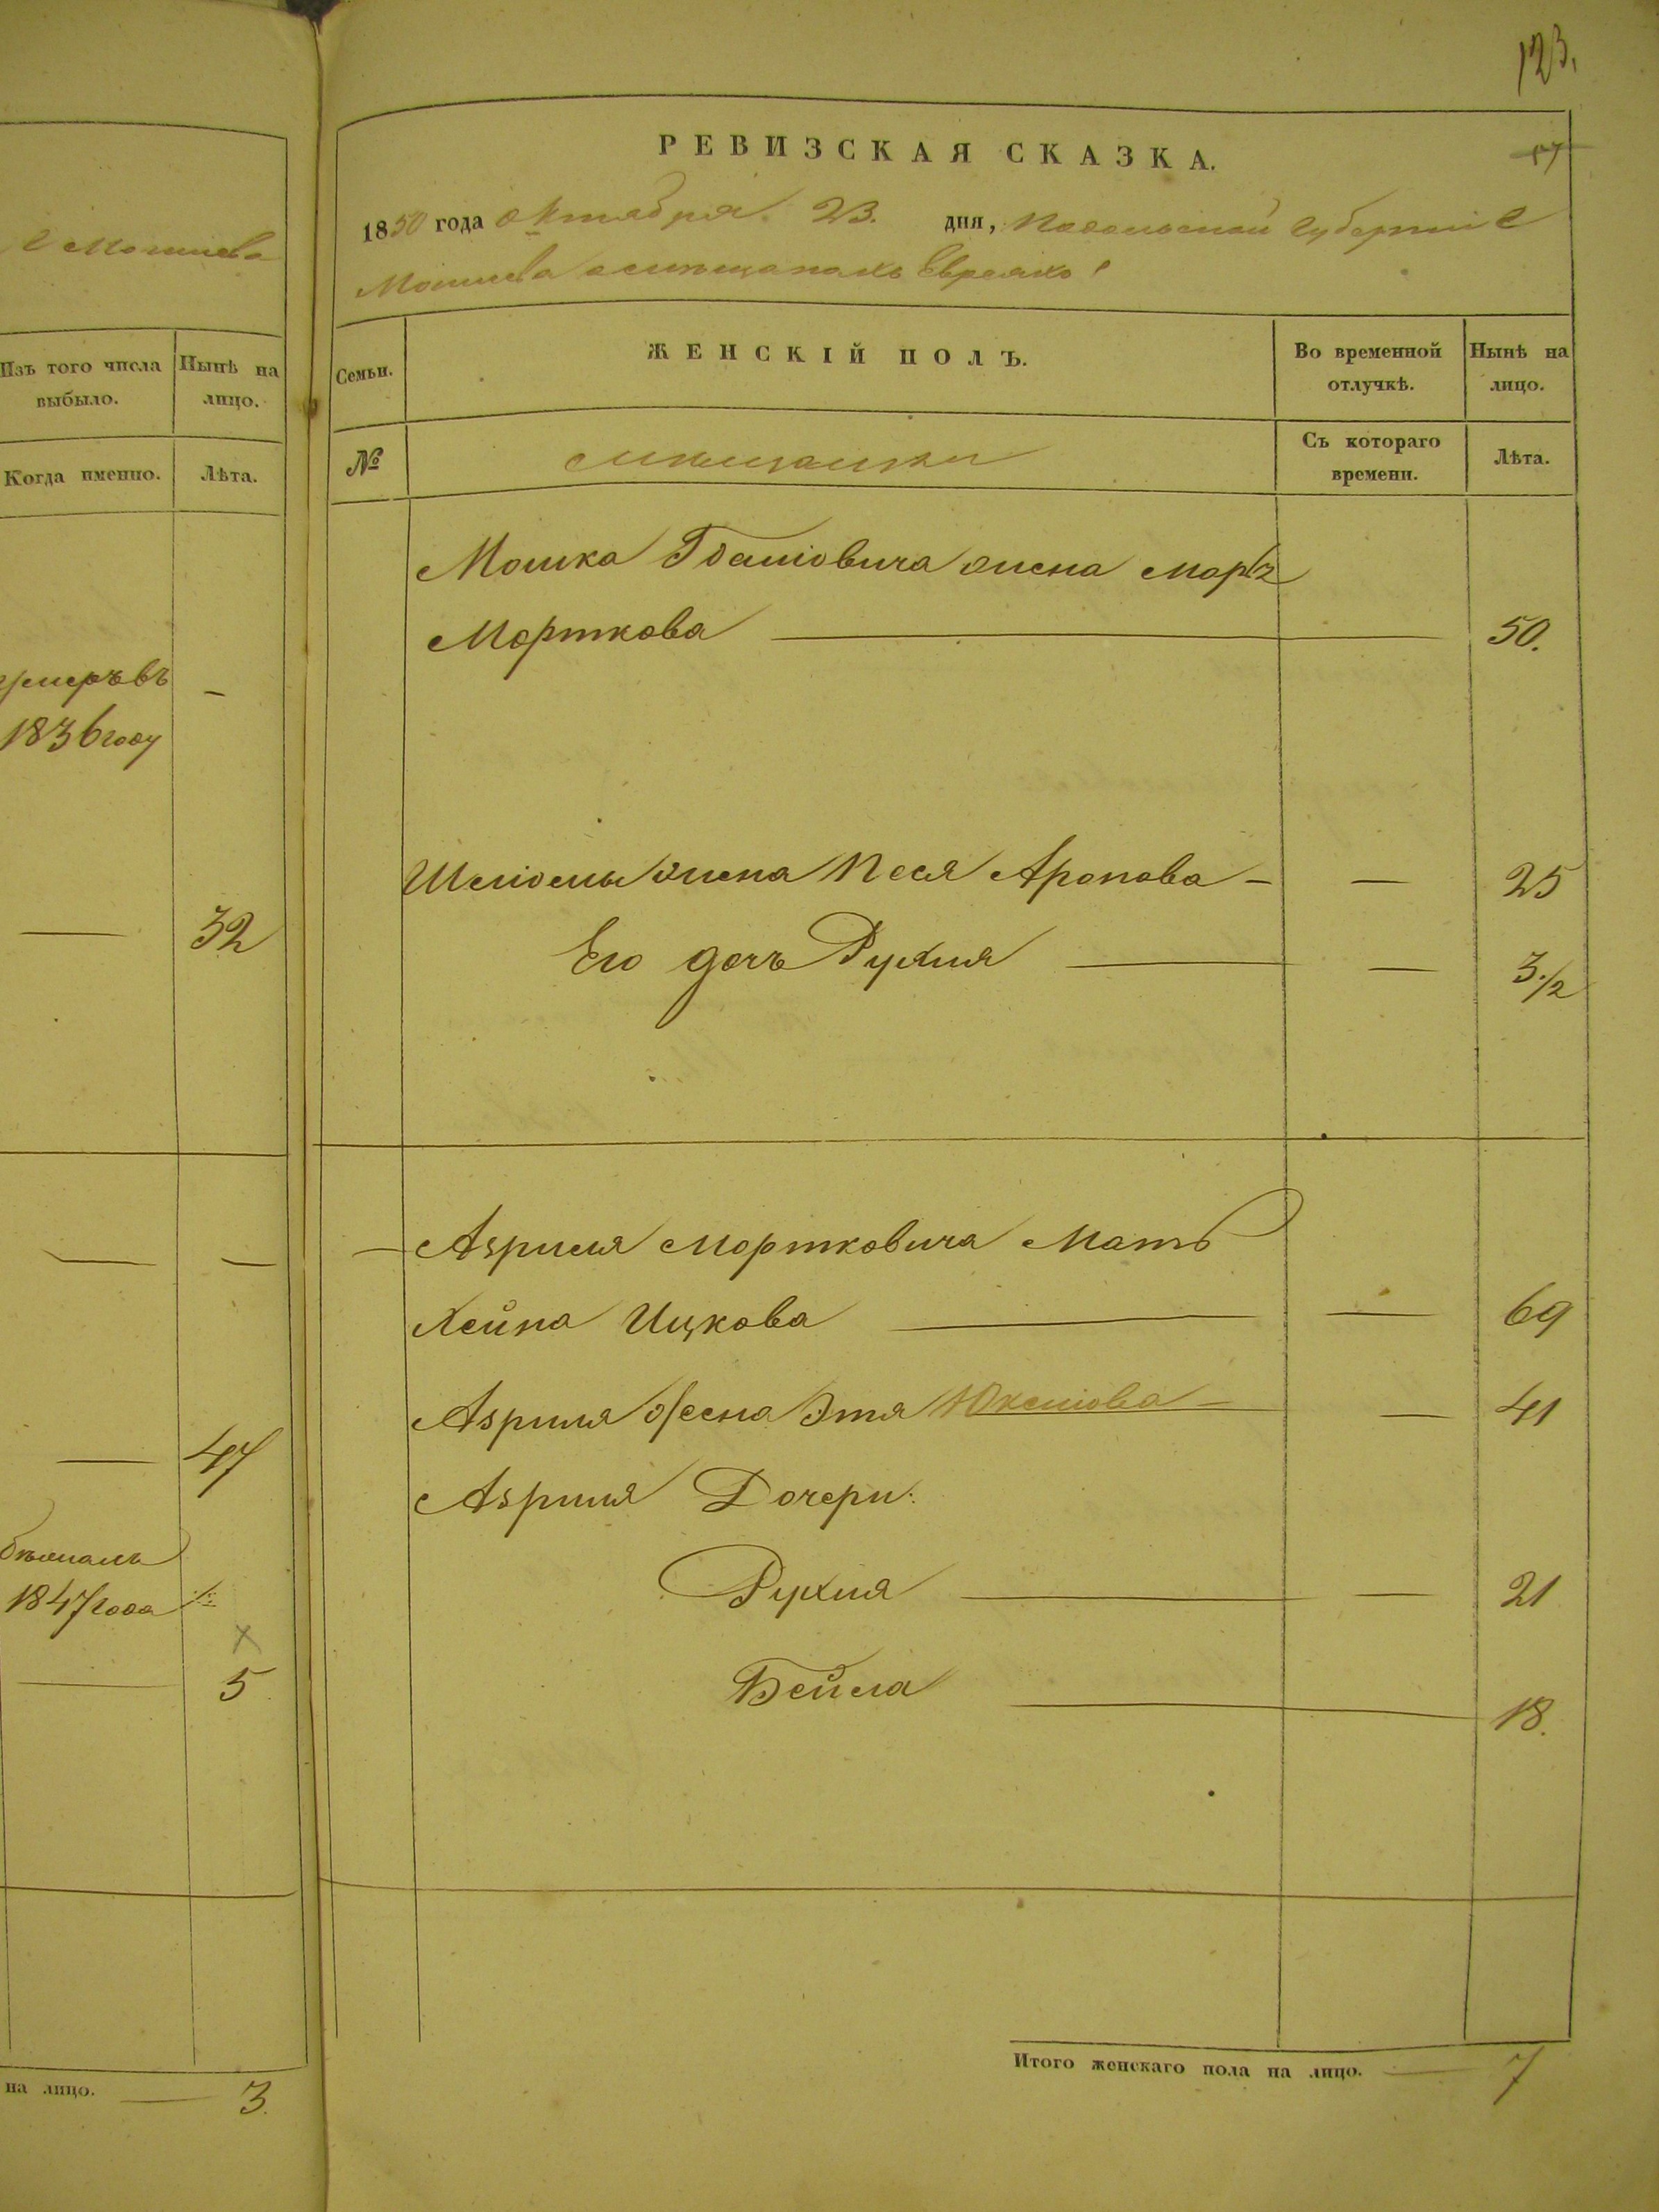 123.
РЕВИЗСКАЯ СКАЗКА.
17
1850 года октября 23. дня, Подольской Губерніи
Могилева о мѣщанахъ Евреяхъ
Могилева
Изъ того числа выбыло.
Нынѣ на лицо.
Когда именно.
Лѣта.
умеръ въ —
1836 году
— 32
— —
— 47
1847 года
— 5
на лицо. — 3.
Семьи.
ЖЕНСКІЙ ПОЛЪ.
Во временной отлучкѣ.
Нынѣ на лицо.
№
мѣщанки
Съ котораго времени.
Лѣта.
Мошка жена
Морткова — 50.
Шліомы жена Песя Аронова — — 25
Его дочь Рухля — — 3 1/2
Азриля Мортковича Мать
Хейна Ицкова — — 69
Азриля жена Этя — — 41
Азриля Дочери:
Рухля — — 21
Бейла — 18.
Итого женскаго пола на лицо. — 7